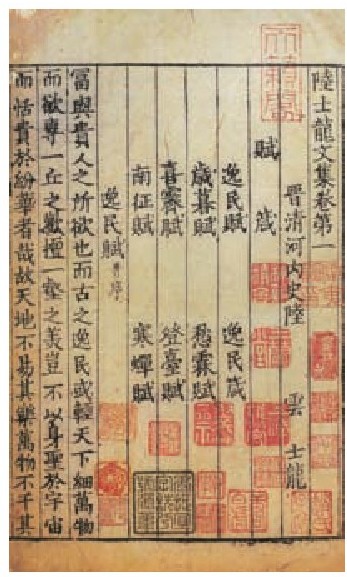 陸士龍文集卷第一
晉清河內史陸 雲 士龍
賦 箴
逸民賦 逸民箴
歲暮賦 愁霖賦
喜霽賦 登臺賦
南征賦 寒蟬賦
逸民賦并序
富與貴人之所欲也而古之逸民或輕天下細萬物
而欲專一丘之歡擅一壑之美豈不以身聖於宇宙
而恬貴於紛華者哉故天地不易其樂萬物不干其